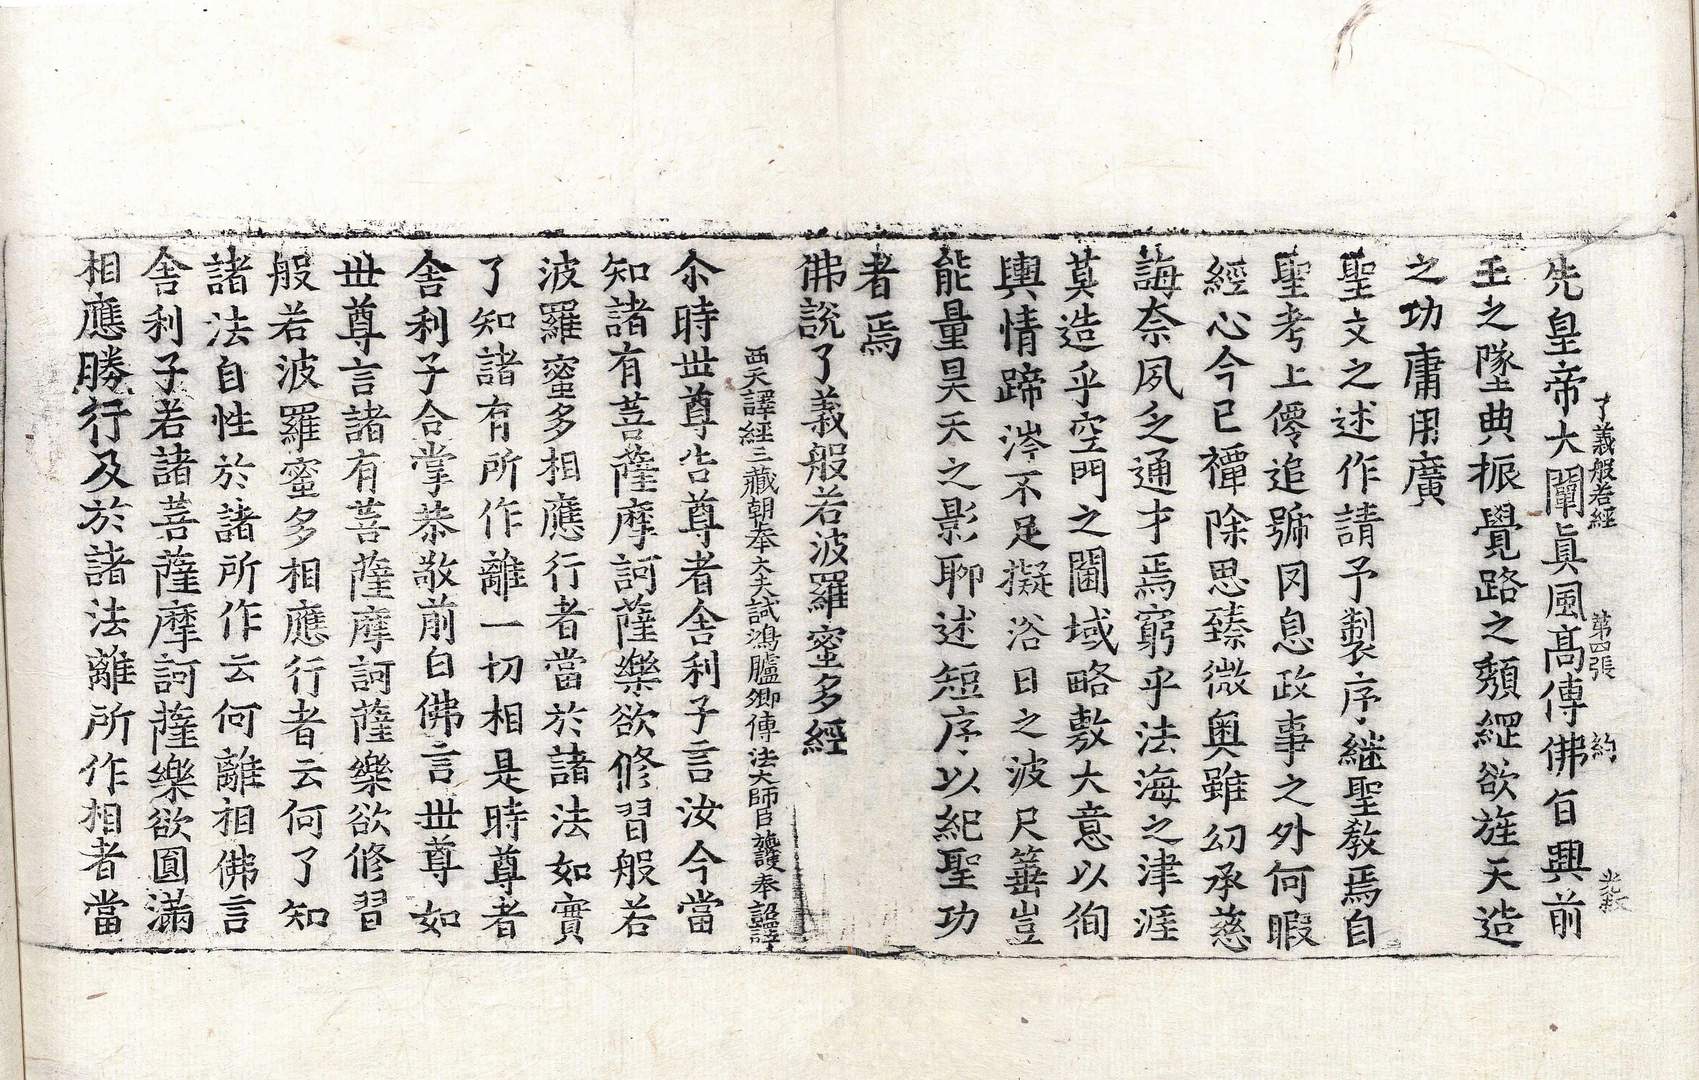 了義般若經 第四張 約
先皇帝大闡眞風高傳佛旨興前
王之墜典振覺路之頹綱欲旌天造
之功庸用廣
聖文之述作請予製序継聖教焉自
聖考上僊追號罔息政事之外何暇
經心今已禫除思臻微奥雖幼承慈
誨奈夙乏通才焉窮乎法海之津涯
莫造乎空門之閫域略敷大意以徇
輿情蹄涔不足擬浴日之波尺箠豈
能量昊天之影聊述短序以紀聖功
者焉
佛說了義般若波羅蜜多經
西天譯經三藏朝奉大夫試鴻臚卿傳法大師臣施護奉詔譯
尒時丗尊告尊者舎利子言汝今當
知諸有菩薩摩訶薩樂欲修習般若
波羅蜜多相應行者當於諸法如實
了知諸有所作離一切相是時尊者
舎利子合掌恭敬前白佛言丗尊如
丗尊言諸有菩薩摩訶薩樂欲修習
般若波羅蜜多相應行者云何了知
諸法自性於諸所作云何離相佛言
舎利子若諸菩薩摩訶薩樂欲圓滿
相應勝行及於諸法離所作相者當